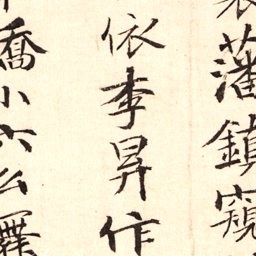 藩鎮窺
依李昇作
喬小六么羅